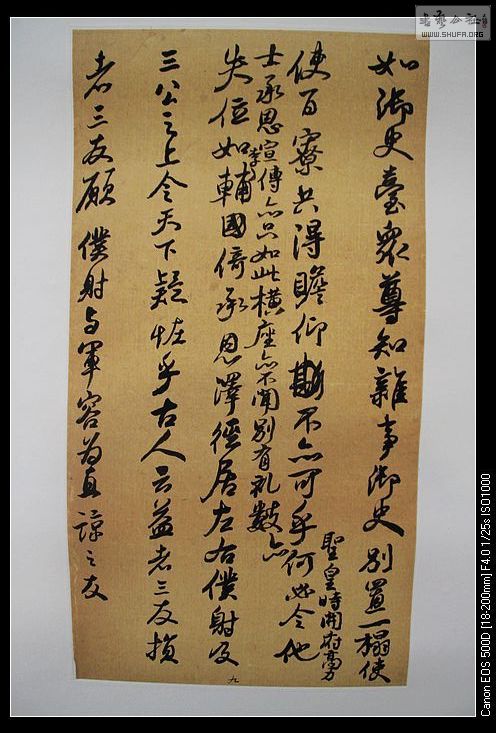 如御史臺衆尊知雜事御史別置一榻使
使百寮共得瞻仰斯不亦可乎何必令他
聖皇時開府高力
士承恩宣傳亦只如此横座亦不聞別有礼數亦
失位如李輔國倚承恩澤徑居左右僕射及
三公之上令天下疑恠乎古人云益者三友損
者三友願僕射与軍容為直諒之友
九
書藝公社
WWW.SHUFA.ORG
Canon EOS 500D [18-200mm] F4.0 1/25s ISO1000